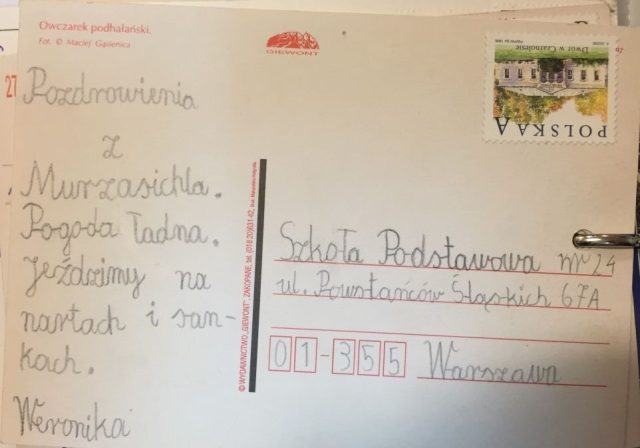 Owczarek podhalański.
Fot. © Maciej Gąsienica
GIEWONT
Dwór w Czarnolesie
POLSKA A
Pozdrowienia
z
Murzasichla.
Pogoda ładna.
Jeździmy na
nartach i san-
kach.
Weronika
© WYDAWNICTWO „GIEWONT”, ZAKOPANE, tel. (018 20)631 42,
Szkoła Podstawowa nr 24
ul. Powstańców Śląskich 67A
01-355 Warszawa
27